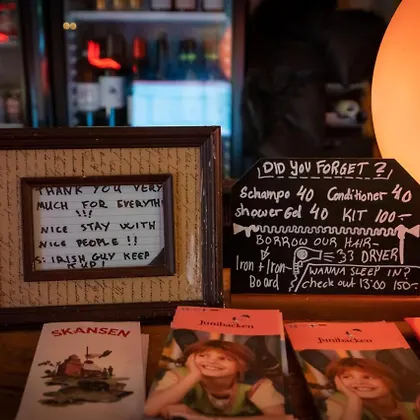 THANK YOU VERY
MUCH FOR EVERYTHI
!!!
NICE STAY WITH
NICE PEOPLE !!
S: IRISH GUY KEEP
IT UP!
DID YOU FORGET ?
Schampo 40 Conditioner 40
showerGel 40 KIT 100:-
BORROW OUR HAIR-
DRYER
Iron + Iron-
Board
WANNA SLEEP IN?
check out 13:00 150:-
SKANSEN
Junibacken
Junibacken